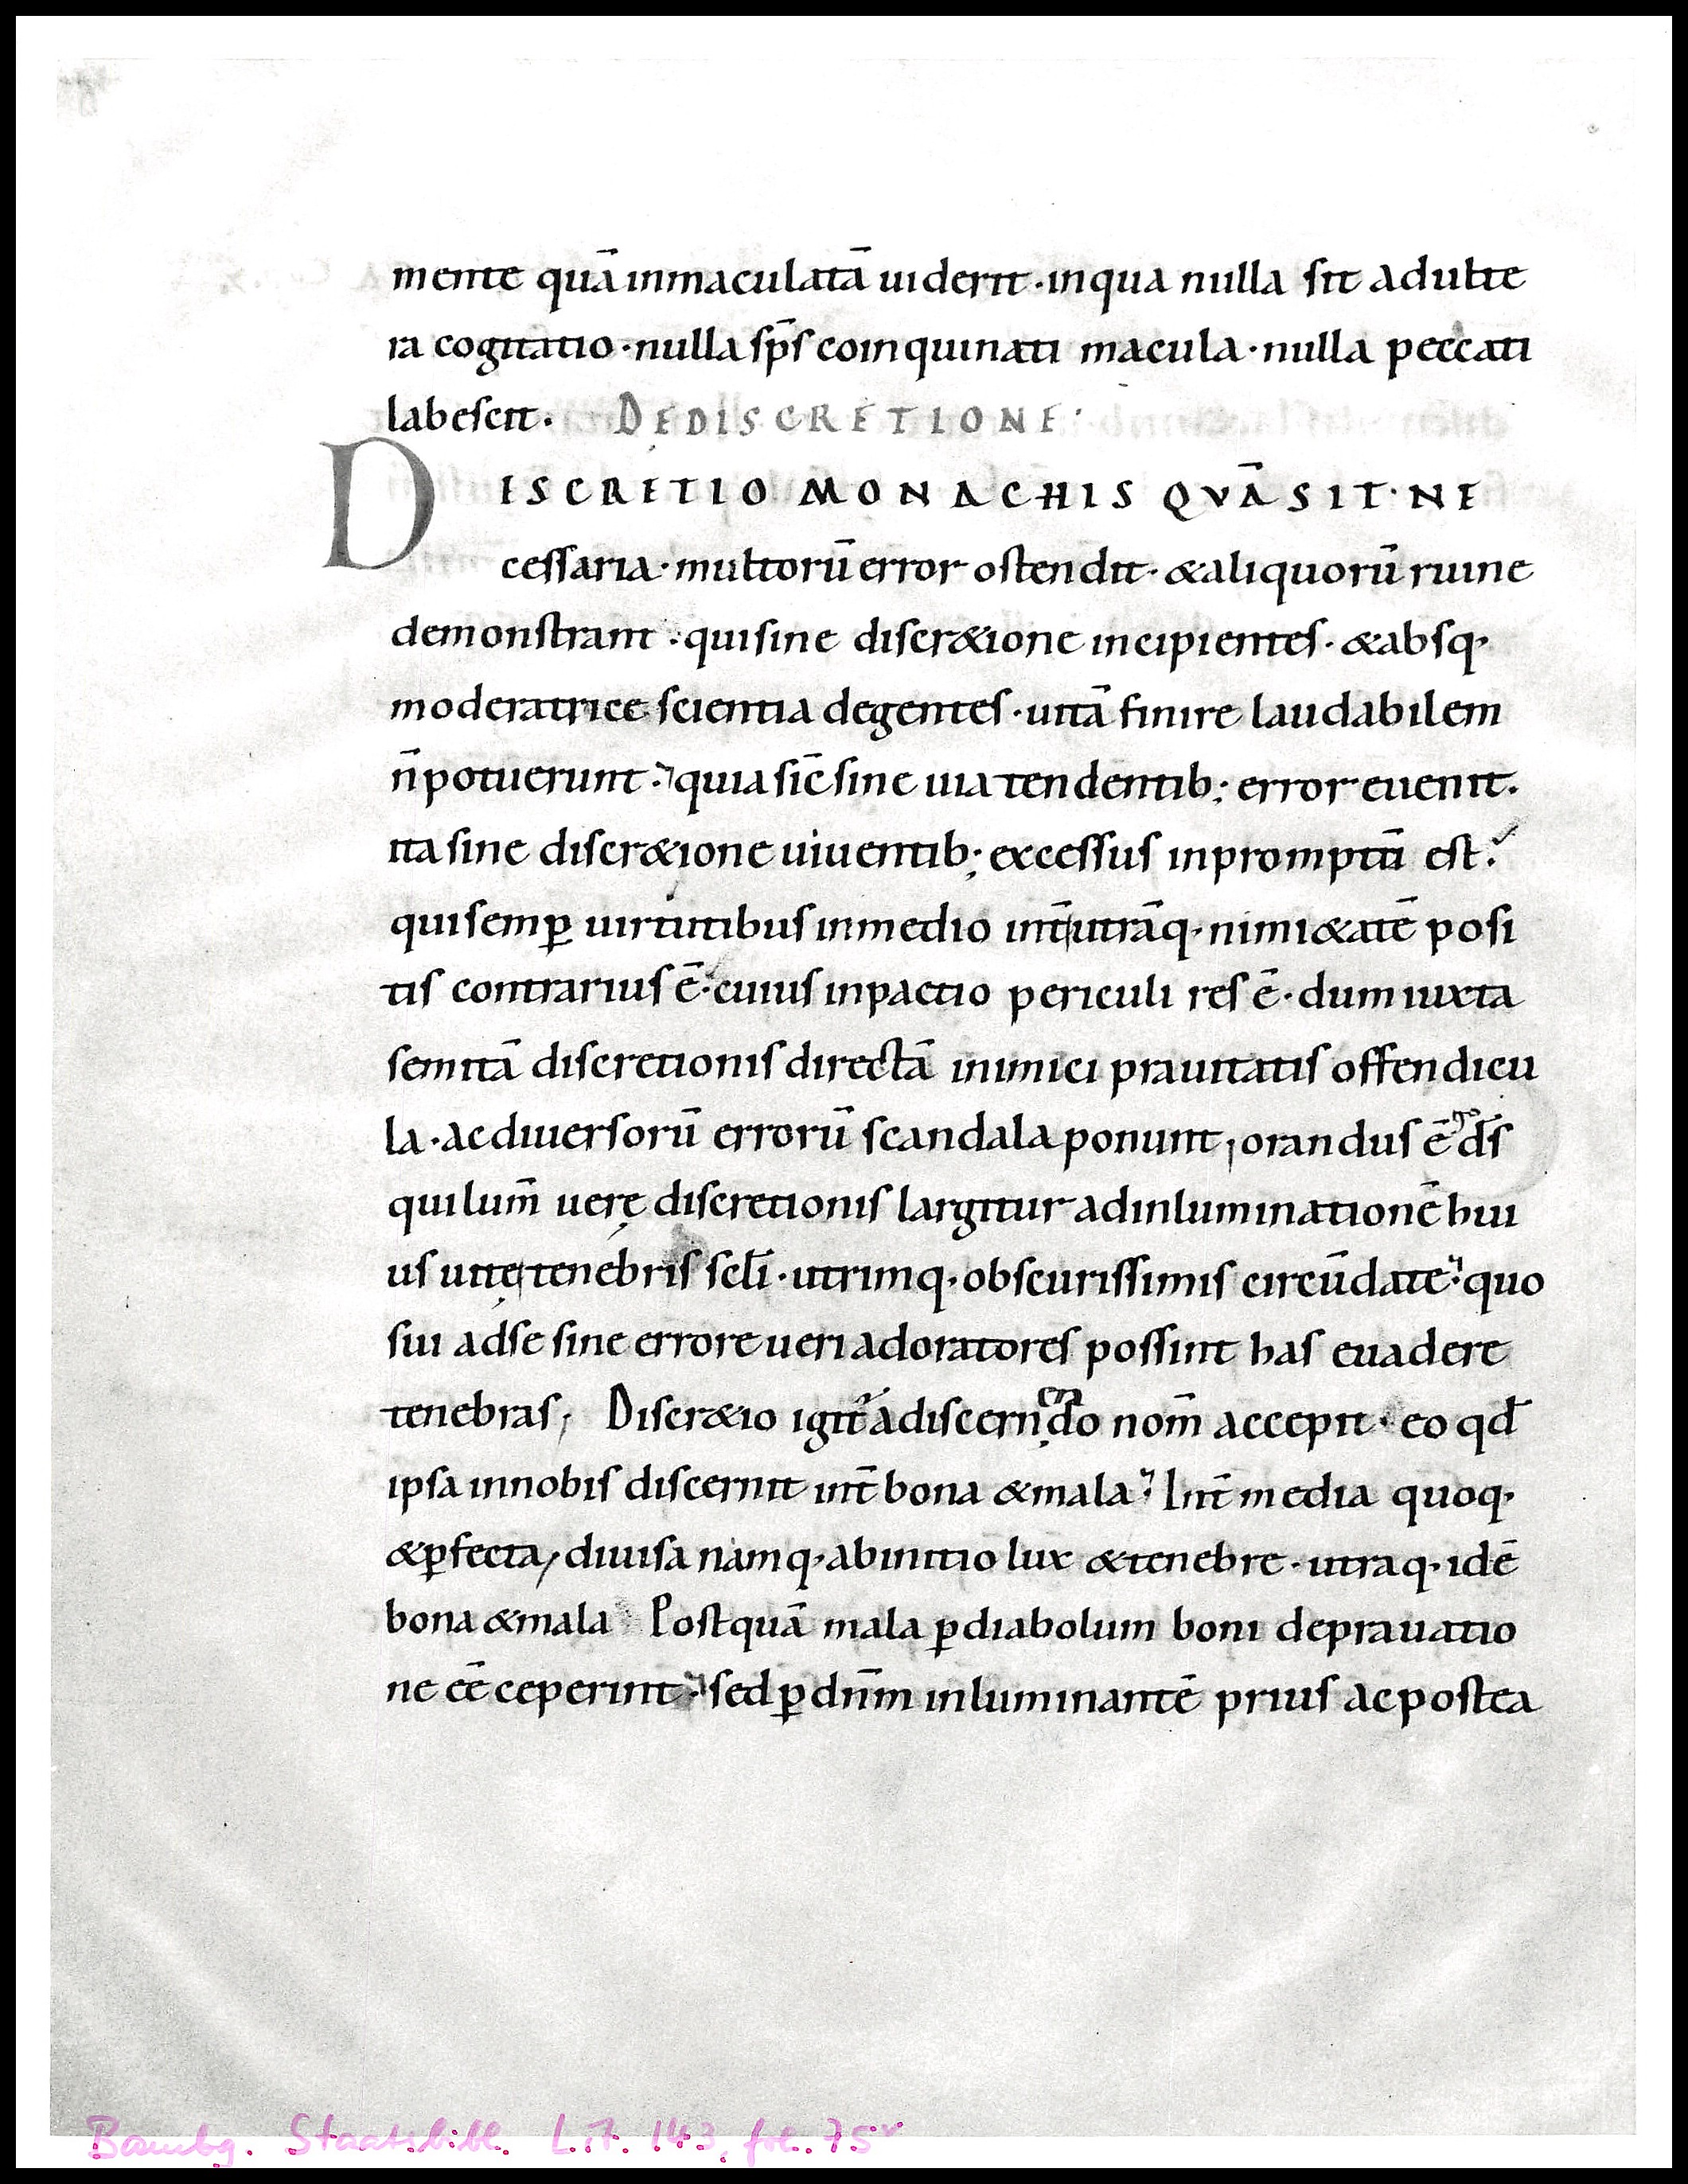 mente quā inmaculatā uiderit · inqua nulla sit adulte
ra cogitatio · nulla sp̄s coinquinati macula · nulla peccati
labescit . DEDISCRETIONE
DISCRETIO MONACHIS QVĀ SIT · NE
cessaria · multorū error ostendit · &aliquorū ruine
demonstrant · quisine discr&ione incipientes · &absq·
moderatrice scientia degentes · uitā finire laudabilem
n̄ potuerunt · quia sic̄ sine uia tendentib; error euenit .
ita sine discr&ione uiuentib; excessus inpromptū est ·
quisemꝑ uirtutibus inmedio int̄ utrāq· nimi&atē posi
tis contrarius ē · cuius inpactio periculi res ē · dum iuxta
semitā discretionis directā inimici prauitatis offendicu
la · acdiuersorū errorū scandala ponunt ; orandus ē gͦ d̄s
qui lum̄ uerę discretionis largitur adinluminationē hui
us uitę tenebris scl̄i · utrimq· obscurissimis circūdate · quo
sui adse sine errore ueri adoratores possint has euadere
tenebras ; Discr&io igit᷑ adiscernendo nom̄ accepit · eo qd̄
ipsa innobis discernit int̄ bona &mala · Int̄ media quoq·
&ꝑfecta ; diuisa namq· abinitio lux &tenebre · utraq· idē
bona &mala Postquā mala ꝑdiabolum boni deprauatio
ne eē ceperint · sed ꝑ dn̄m inluminantē prius acpostea
Bambg. Staatsbibl. Lit. 143, fol. 75ʳ